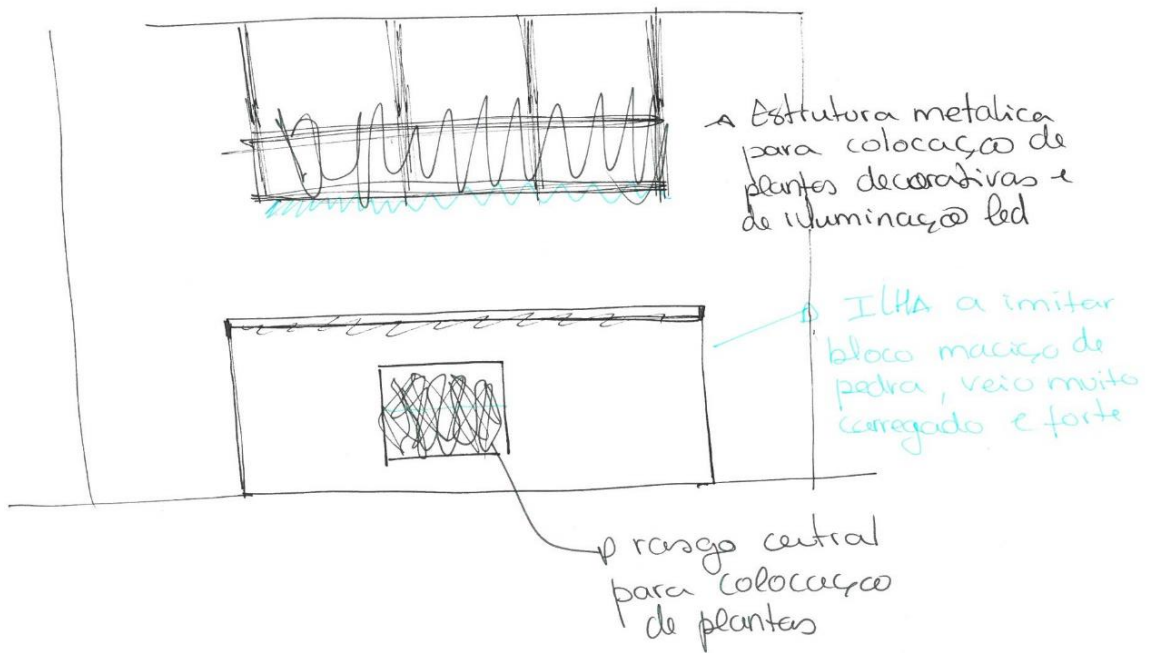 Estrutura metalica
para colocação de
plantas decorativas e
de iluminação led
ILHA a imitar
bloco maciço de
pedra, veio muito
carregado e forte
rasgo central
para colocação
de plantas